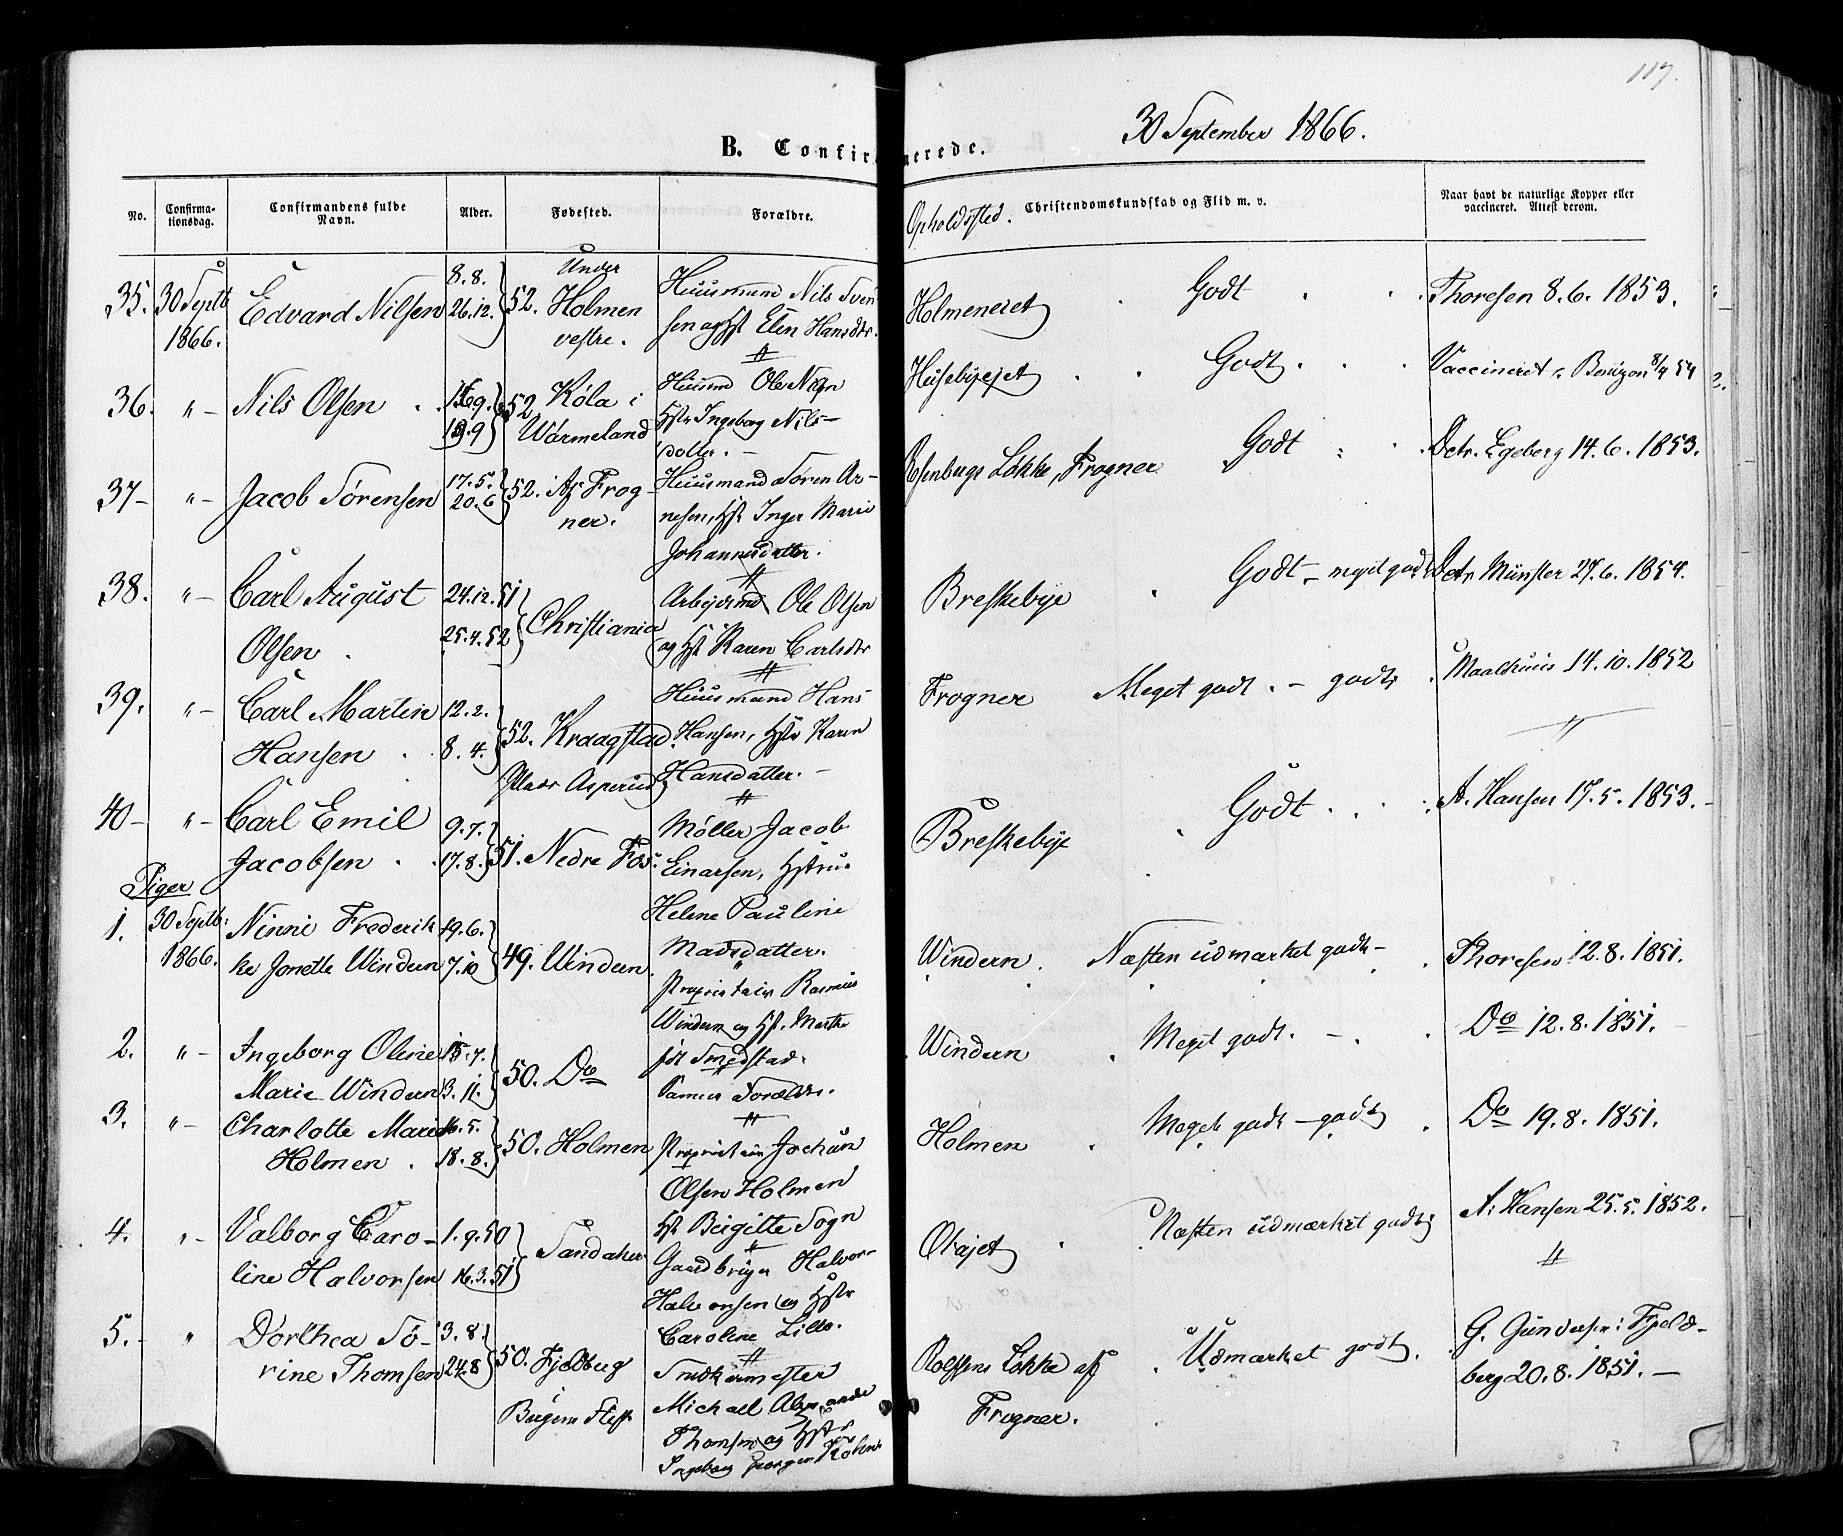 117.
30 September 1866.
B. Confirmerede.
No.
Confirma-
tionsdag.
Confirmandens fulde
Navn.
Alder.
Fødested.
Forældre.
Opholdssted.
Christendomskundskab og Flid m. v.
Naar havt de naturlige Kopper eller
vaccineret. Attest derom.
35. 30 Septb 1866. Edvard Nilsen 8.8. 26.12. 52. Under Holmen vestre.
Huusmand Nils Sven
sen og Hst Elen Hansdtr.
Holmeneiet Godt Thoresen 8.6. 1853.
36. " - Nils Olsen 19.9 52. Køla i Wärmeland
Huusmd Ole Nilsen
Hstr Ingeborg Nils-
datter. -
Husebyejet Godt Vaccineret 8/4 54
37 - " - Jacob Sørensen 17.5. 20.6 52. Frog-
ner.
Huusmand Søren Ar-
nesen, Hst Inger Marie
Johannesdatter.
Rosenborgs Løkke, Frogner Godt Dctr. Egeberg 14.6. 1853.
38. " - Carl August
Olsen 24.12. 51 25.4. 52 Christiania
Arbejdsmd Ole Olsen
og Hst Karen Carlsdtr
Breskebye Godt - meget godt Dctr Münster 27.6. 1854.
39. " - Carl Martin
Hansen 12.2. 8.4. 52. Kraagstad
Plads Asperud
Huusmand Hans
Hansen, Hstr Karen
Hansdatter. -
Frogner Meget godt. - godt Maalhuus 14.10. 1852
40 - " - Carl Emil
Jacobsen 9.7. 17.8. 51. Nedre Fos.
Møller Jacob
Einarsen, Hstru
Helene Pauline
Madsdatter.
Breskebye Godt A. Hansen 17.5. 1853. -
Piger
1. 30 Septb: 1866. Ninni Frederik
ke Jonette Windern 19.6. 7.10 49. Windern
Proprietair Rasmus
Windern og Hst. Marthe
født Smedstad.
Windern Næsten udmærket godt - Thoresen 12.8. 1851.
2. " - Ingeborg Oline
Marie Windern 15.7. 3.11. 50. Do
Samme Forældre.
Windern Meget godt. - Do 12.8. 1851.
3. " - Charlotte Marie
Holmen 16.5. 18.8. 50. Holmen
Proprietair Jochum
Olsen Holmen
Hst Birgitte Sogn
Holmen Meget godt - godt Do 19.8. 1851.
4. " - Valborg Caro-
line Halvorsen 1.9. 50 16.3. 51 Sandaker
Gaardbruger Halvor
Halvorsen og Hstr
Caroline Lills.
Næsten udmærket godt A. Hansen 25.5. 1852.
5. " Dorthea So-
rine Thomsen 3.8. 24.8 50. Fjeldberg
Bergens Stift
Michael
Thomsen og Hstr
Ingeborg
Rolfsens Løkke af
Frogner. Udmærket godt. G. Gundersen: Fjeld-
berg 20.8. 1851. -